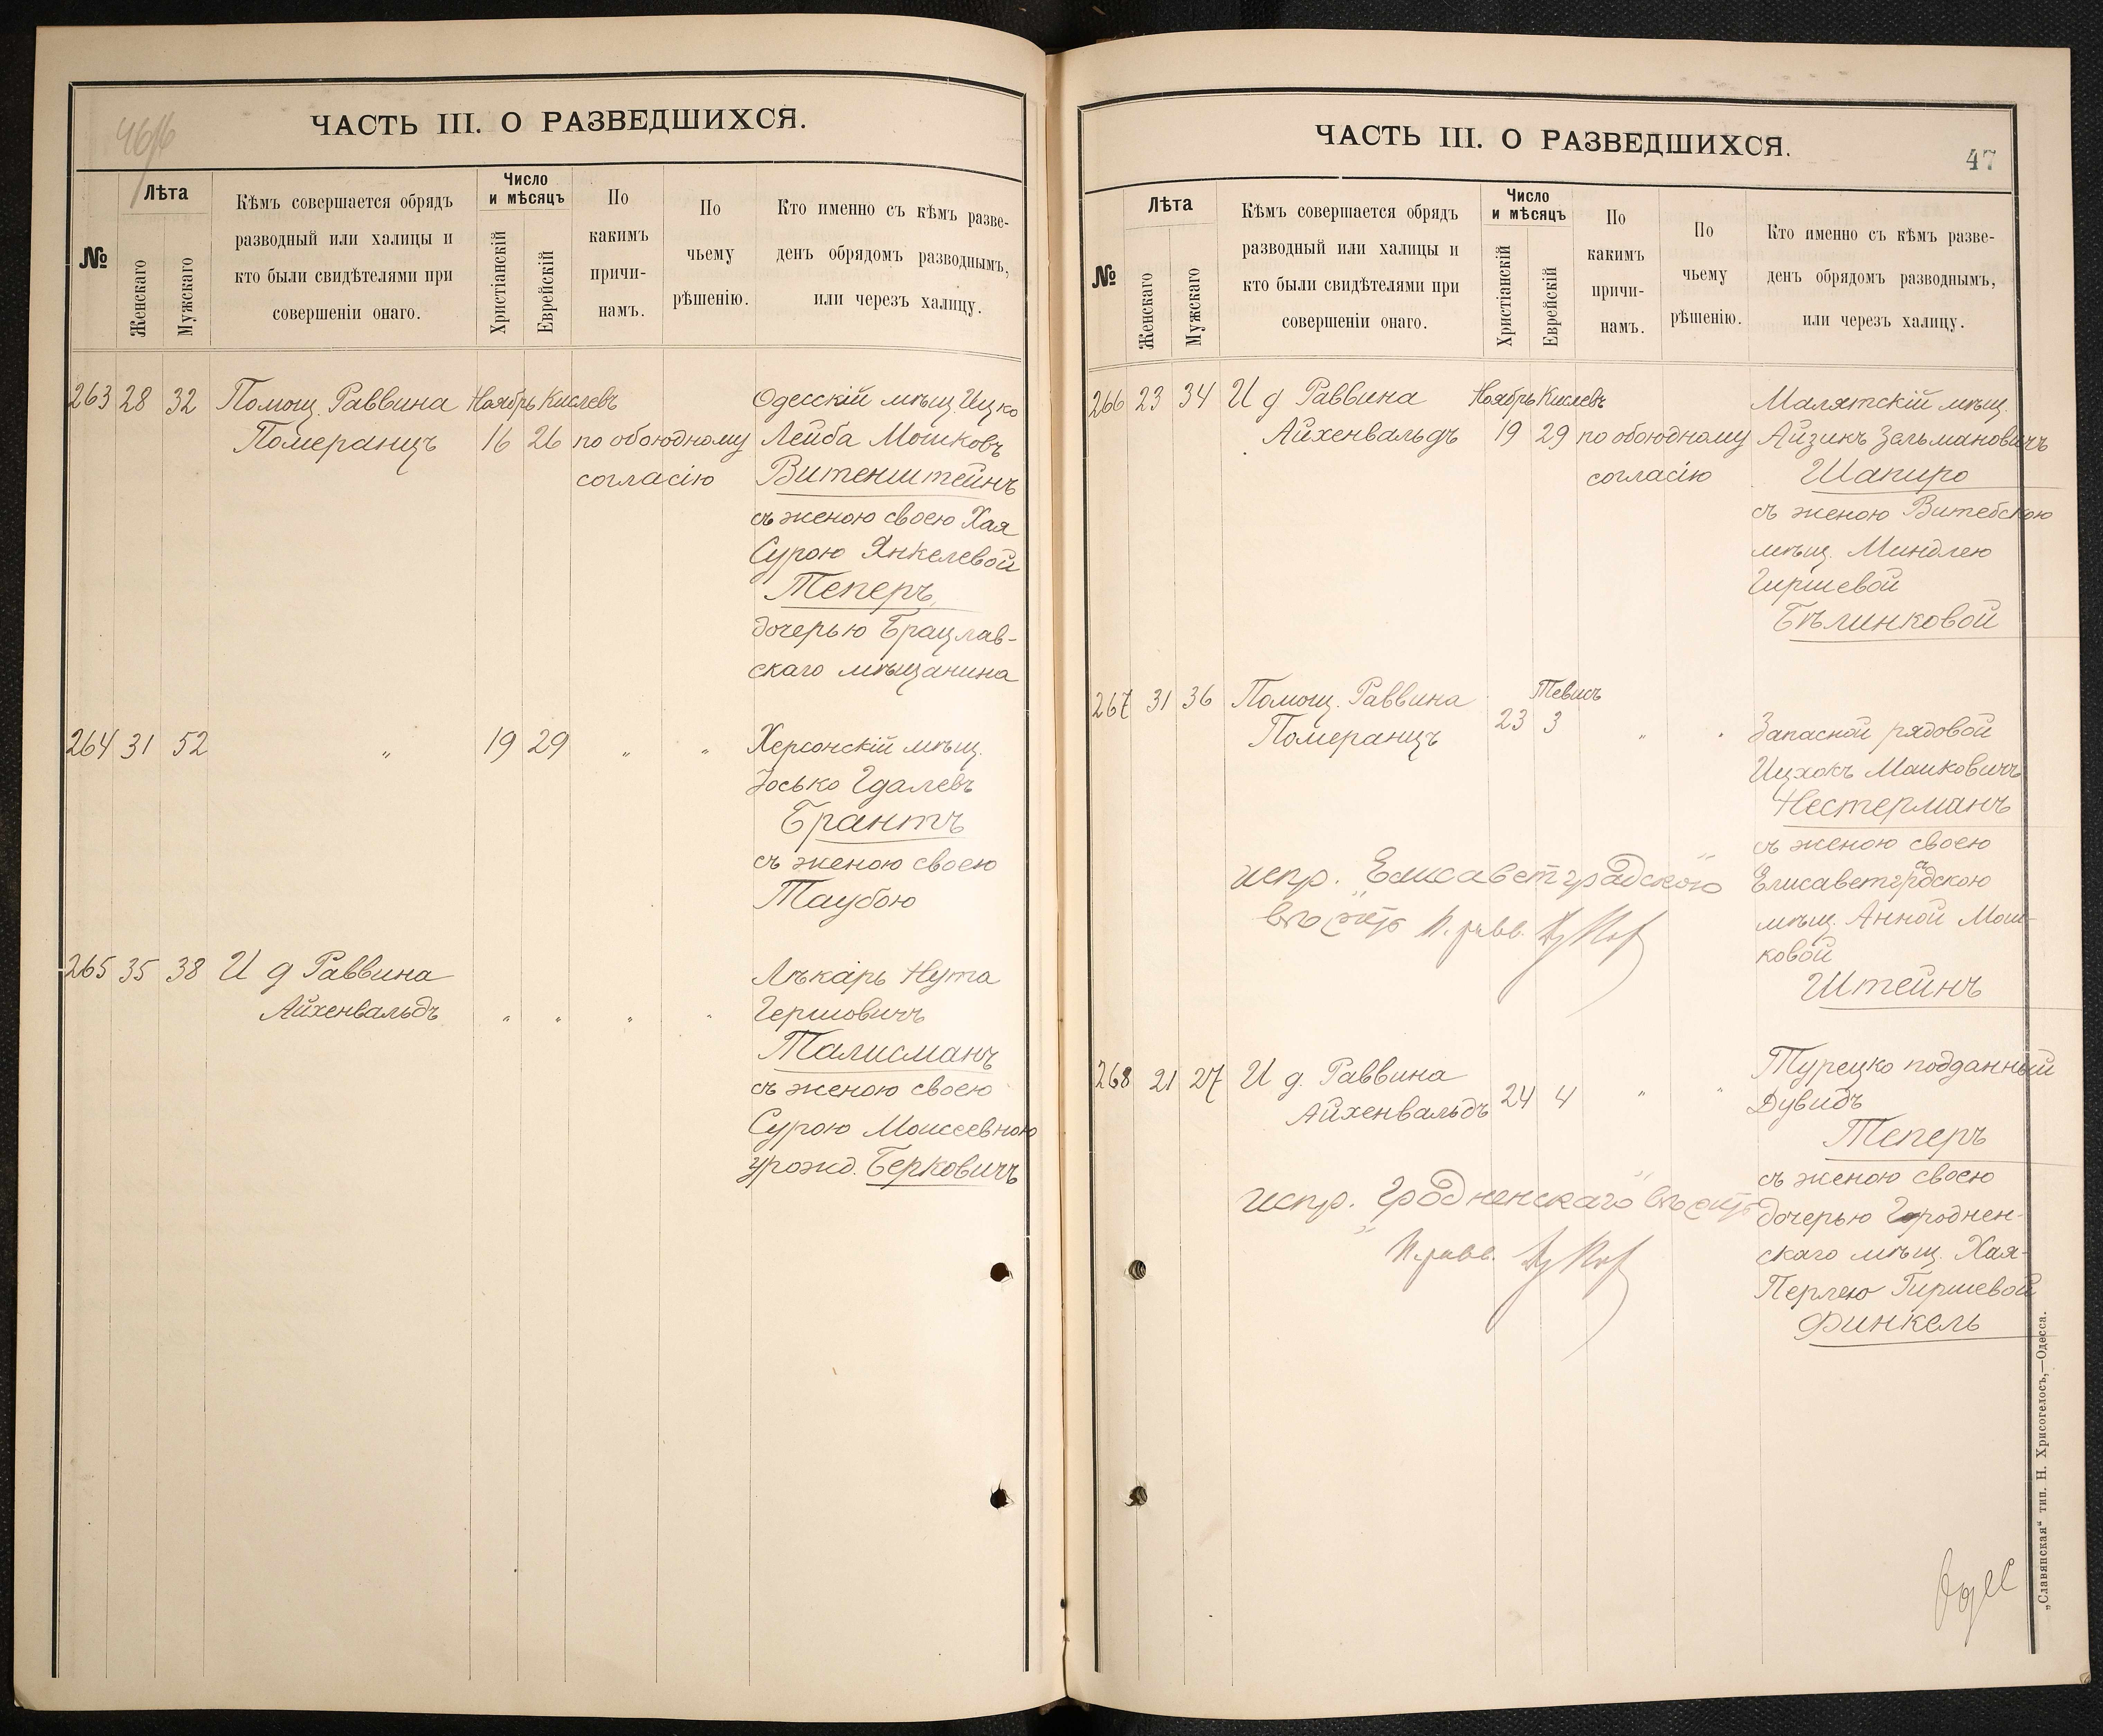 ЧАСТЬ III. О РАЗВЕДШИХСЯ.
№
Лѣта
Женскаго
Мужскаго
Кѣмъ совершается обрядъ
разводный или халицы и
кто были свидѣтелями при
совершеніи онаго.
Число
и мѣсяцъ
Христіанскій
Еврейскій
По
какимъ
причи-
намъ.
По
чьему
рѣшенію.
Кто именно съ кѣмъ разве-
денъ обрядомъ разводнымъ,
или черезъ халицу.
263 28 32 Помощ. Раввина Ноябрь Кислевъ Одесскій мѣщ. Ицко
Померанцъ 16 26 по обоюдному Лейба Мошковъ
согласію Витенштейнъ
съ женою своею Хая
Сурою Янкелевой
Теперъ
дочерью Брацлав-
скаго мѣщанина
264 31 52 " 19 29 " " Херсонскій мѣщ.
Іосько Гдалевъ
Брантъ
съ женою своею
Таубою
265 35 38 И д Раввина Лѣкарь Нута
Айхенвальдъ " " " " Гершовичъ
Талисманъ
съ женою своею
Сурою Моисеевною
урожд. Берковичъ
ЧАСТЬ III. О РАЗВЕДШИХСЯ.
47
№
Лѣта
Женскаго
Мужскаго
Кѣмъ совершается обрядъ
разводный или халицы и
кто были свидѣтелями при
совершеніи онаго.
Число
и мѣсяцъ
Христіанскій
Еврейскій
По
какимъ
причи-
намъ.
По
чьему
рѣшенію.
Кто именно съ кѣмъ разве-
денъ обрядомъ разводнымъ,
или черезъ халицу.
266 23 34 И д Раввина Ноябрь Кислевъ Малятскій мѣщ.
Айхенвальдъ 19 29 по обоюдному Айзикъ Зельмановичъ
согласію Шапиро
съ женою Витебскою
мѣщ. Миндлею
Гиршевой
Бѣлинковой
267 31 36 Помощ. Раввина Тевисъ
Померанцъ 23 3 " " Запасной рядовой
Ицхокъ Маиковичъ
Нестерманъ
съ женою своею
испр. "Елисаветградскою" Елисаветградскою
П. равв. мѣщ. Анной Мош-
ковой
Штейнъ
268 21 27 И д. Раввина Турецко подданный
Айхенвальдъ 24 4 " " Дувидъ
Теперъ
съ женою своею
испр. "Гродненскаго" дочерью Гроднен-
П. равв. скаго мѣщ. Хая-
Перлею Гиршевой
Финкель
„Славянская“ тип. Н. Хрисогелосъ,—Одесса.